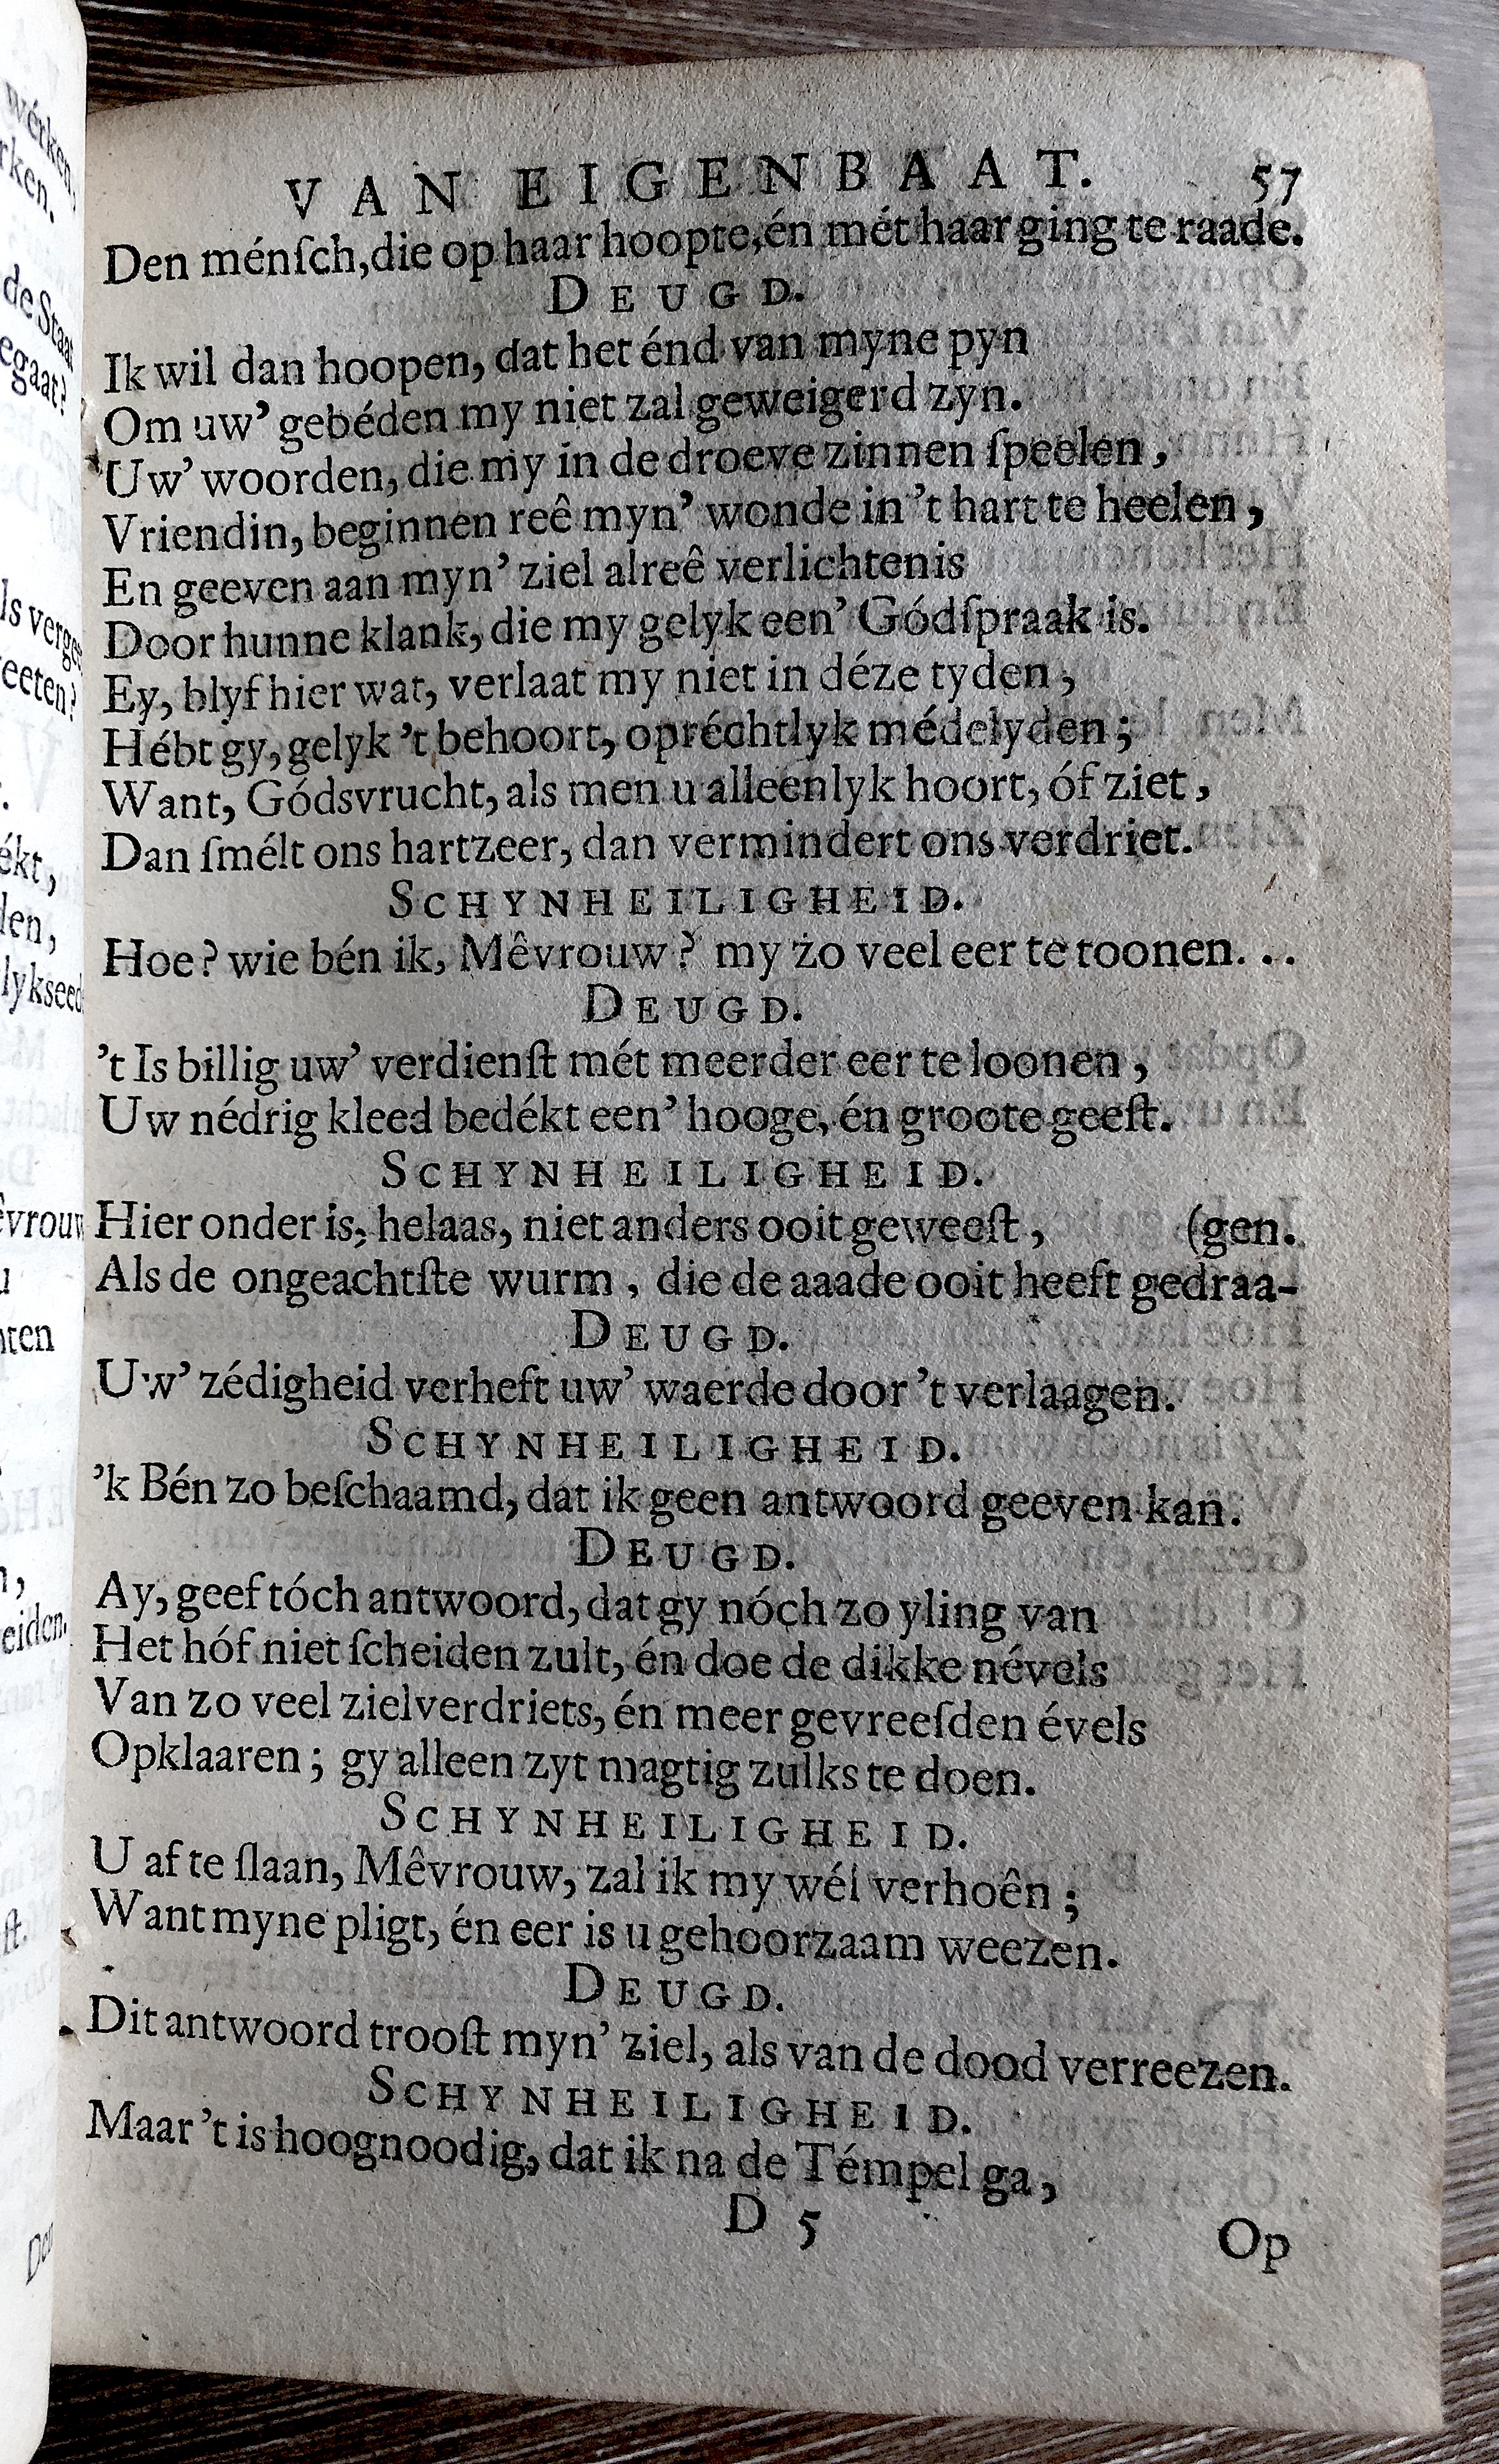 VAN EIGENBAAT. 57
Den ménſch, die op haar hoopte, én mét haar ging te raade.
DEUGD.
Ik wil dan hoopen, dat het énd van myne pyn
Om uw' gebéden my niet zal geweigerd zyn.
Uw' woorden, die my in de droeve zinnen ſpeelen,
Vriendin, beginnen reê myn' wonde in 't hart te heelen,
En geeven aan myn' ziel alreê verlichtenis
Door hunne klank, die my gelyk een' Gódſpraak is.
Ey, blyf hier wat, verlaat my niet in déze tyden,
Hébt gy, gelyk 't behoort, opréchtlyk médelyden;
Want, Gódsvrucht, als men u alleenlyk hoort, óf ziet,
Dan ſmélt ons hartzeer, dan vermindert ons verdriet.
SCHYNHEILIGHEID.
Hoe? wie bén ik, Mêvrouw? my zo veel eer te toonen...
DEUGD.
't Is billig uw' verdienſt mét meerder eer te loonen,
Uw nédrig kleed bedékt een' hooge, én groote geeſt.
SCHYNHEILIGHEID.
Hier onder is, helaas, niet anders ooit geweeſt, (gen.
Als de ongeachtſte wurm, die de aaade ooit heeft gedraa-
DEUGD.
Uw' zédigheid verheft uw' waerde door 't verlaagen.
SCHYNHEILIGHEID.
'k Bén zo beſchaamd, dat ik geen antwoord geeven kan.
DEUGD.
Ay, geef tóch antwoord, dat gy nóch zo yling van
Het hóf niet ſcheiden zult, én doe de dikke névels
Van zo veel zielverdriets, én meer gevreeſden évels
Opklaaren; gy alleen zyt magtig zulks te doen.
SCHYNHEILIGHEID.
U af te ſlaan, Mêvrouw, zal ik my wél verhoên;
Want myne pligt, én eer is u gehoorzaam weezen.
DEUGD.
Dit antwoord trooſt myn' ziel, als van de dood verreezen.
SCHYNHEILIGHEID.
Maar 't is hoognoodig, dat ik na de Témpel ga,
D 5 Op